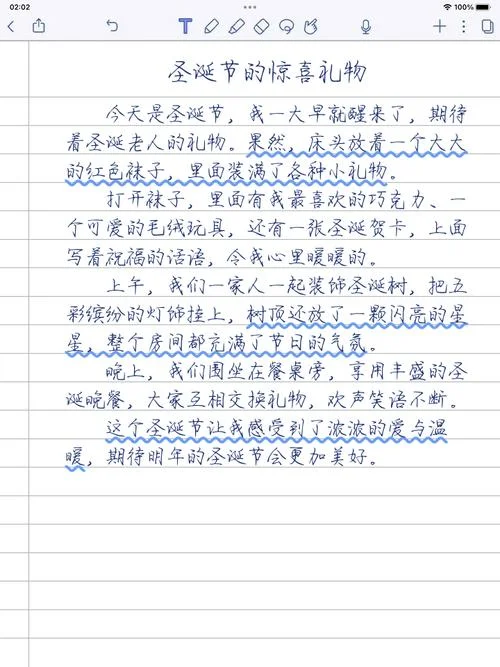 02:02
100%
圣诞节的惊喜礼物
今天是圣诞节，我一大早就醒来了，期待
着圣诞老人的礼物。果然，床头放着一个大大
的红色袜子，里面装满了各种小礼物。
打开袜子，里面有我最喜欢的巧克力、一
个可爱的毛绒玩具，还有一张圣诞贺卡，上面
写着祝福的话语，令我心里暖暖的。
上午，我们一家人一起装饰圣诞树，把五
彩缤纷的灯饰挂上，树顶还放了一颗闪亮的星
星，整个房间都充满了节日的气氛。
晚上，我们围坐在餐桌旁，享用丰盛的圣
诞晚餐，大家互相交换礼物，欢声笑语不断。
这个圣诞节让我感受到了浓浓的爱与温
暖，期待明年的圣诞节会更加美好。